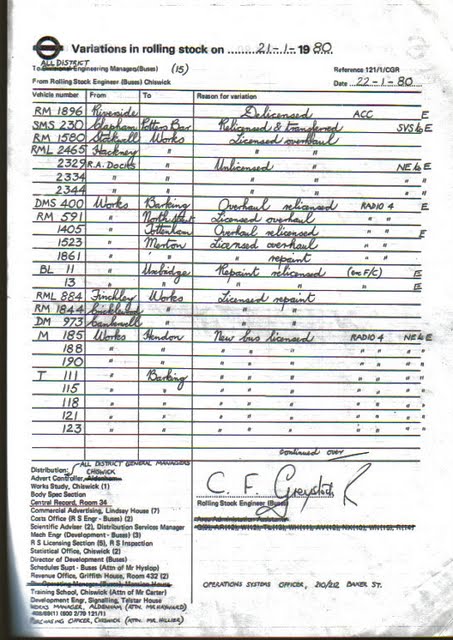 Variations in rolling stock on 21-1-1980
ALL DISTRICT
To Divisional Engineering Managers(Buses) (15) Reference 121/1/CGR
From Rolling Stock Engineer (Buses) Chiswick Date 22-1-80
Vehicle number From To Reason for variation
RM 1896 Riverside Delicensed ACC E
SMS 230 Clapham Potters Bar Relicensed & transferred SVS to E
RM 1580 Stockwell Works Licensed overhaul
RML 2465 Hackney " " "
2329 R.A. Docks " Unlicensed " NE to E
2334 " " " " " "
2344 " " " " " "
DMS 400 Works Barking Overhaul relicensed RADIO 4 E
RM 591 " North Street Licensed overhaul " "
1405 " Tottenham Overhaul relicensed " " E
1523 " Merton Licensed overhaul " "
1861 " " " repaint " "
BL 11 " Uxbridge Repaint relicensed (ex F/C) E
13 " " " " " " E
RML 884 Finchley Works Licensed repaint
RM 1844 Cricklewood " " "
DM 973 Camberwell " " "
M 185 Works Hendon New bus licensed RADIO 4 NE to E
188 " " " " " " " " "
190 " " " " " " " " "
T 111 " Barking " " " " " " "
115 " " " " " " " " "
118 " " " " " " " " "
121 " " " " " " " " "
123 " " " " " " " " "
continued over
ALL DISTRICT GENERAL MANAGERS
Distribution: CHISWICK
Advert Controller, Aldenham
Works Study, Chiswick (1)
Body Spec Section
Central Record, Room 34
C. F. Greystock
Rolling Stock Engineer (Buses)
Commercial Advertising, Lindsey House (7)
Costs Office (R S Engr - Buses) (2)
Scientific Adviser (2), Distribution Services Manager
Mech Engr (Development - Buses) (3)
R S Licensing Section (5), R S Inspection
Statistical Office, Chiswick (2)
Director of Development (Buses)
Schedules Supt - Buses (Attn of Mr Hyslop)
Revenue Office, Griffith House, Room 432 (2)
OPERATIONS SYSTEMS OFFICER, 210/212 BAKER ST.
Training School, Chiswick (Attn of Mr Carter)
Development Engr, Signalling, Telstar House
WORKS MANAGER, ALDENHAM (ATTN. MR HAYWARD)
PURCHASING OFFICER, CHISWICK (ATTN. MR HILLIER)